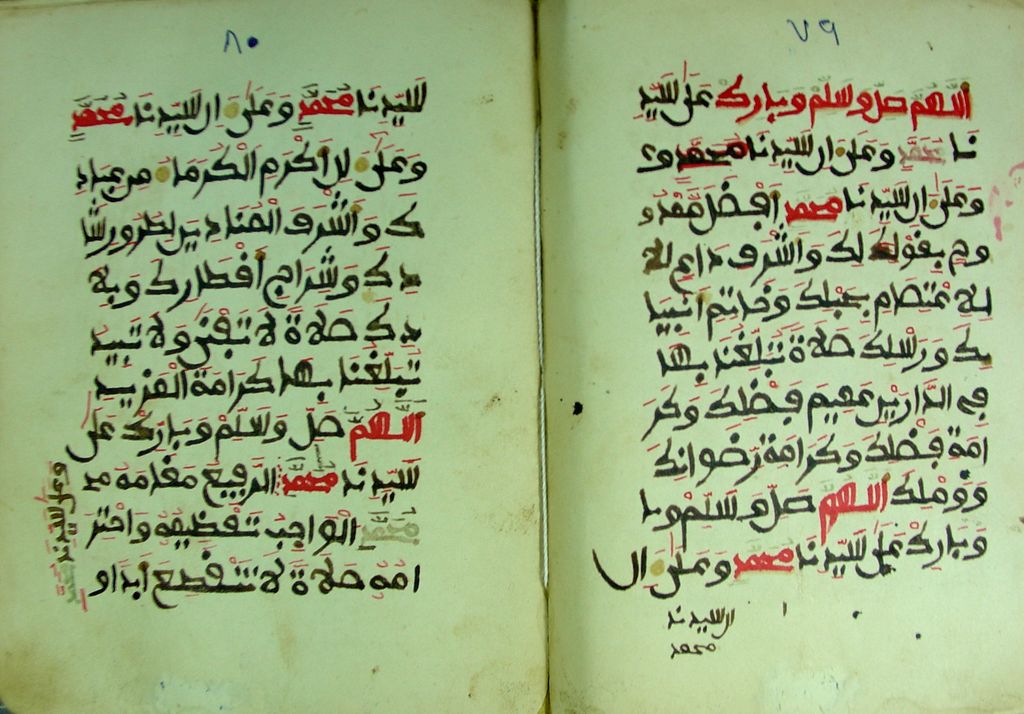 ٧٩
اللهم صل وسلم وبارك على سيد
نا محمد وعلى ال سيدنا محمد و
وعلى ال سيدنا محمد افضل ممدو
وح بقولك واشرف داع
للاعتصام بحبلك وخاتم انبيا
يك ورسلك صلاة تبلغنا بها
في الدارين عميم فضلك وكر
امة فضلك وكرامة رضوانك
ووصلك اللهم صل وسلم وبا
وبارك على سيدنا محمد وعلى ال
ال سيدنا
محمد
٨٠
سيدنا محمد وعلى ال سيدنا محمد
وعلى الاكرم الكرما من عباد
ك واشرف المنادين لطرق رشا
دك وسراج افطارك وبلا
دك صلاة لا تفنى ولا تبيد
تبلغنا بها كرامة المزيد
اللهم صل وسلم وبارك على
سيدنا محمد الرفيع مقامه
محمد الواجب تعظيمه واحتر
امه صلاة لا تنقطع ابدا و
وعلى سيدنا محمد